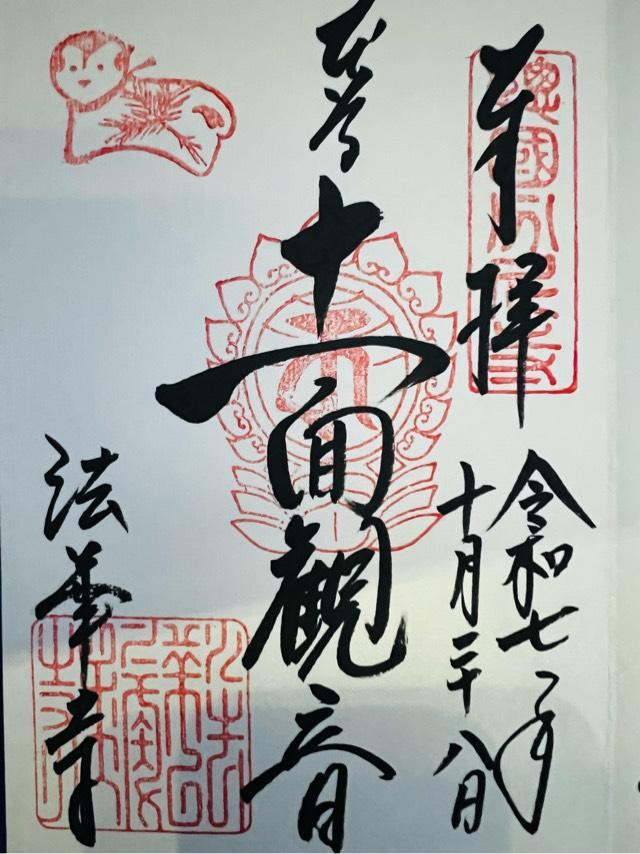 奉拝
令和七年
十月二十八日
本尊
十一面観音
法華寺